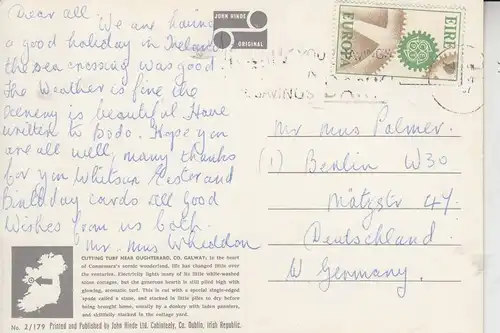 Dear all
We are having
a good holiday in Ireland
the sea crossing was good.
the weather is fine the
scenery is beautiful. Have
written to Bodo. Hope you
are all well, many thanks
for your Whitsun Easter and
Birthday cards all good
wishes from us both.
Mr. Mrs Whiddon
JOHN HINDE
ORIGINAL
EUROPA
EIRE
SAVINGS
Mr Mrs Palmer.
(1) Berlin W30
Mötzstr 47.
Deutschland.
W Germany.
CUTTING TURF NEAR OUGHTERARD, CO. GALWAY; In the heart of
Connemara's scenic wonderland, life has changed little over
the centuries. Electricity lights many of its little white-washed
stone cottages, but the generous hearth is still piled high with
glowing, aromatic turf. This is cut with a special single-edged
spade called a slane, and stacked in little piles to dry before
being brought home, usually by a donkey with laden panniers,
and skilfully stacked in the cottage yard.
No. 2/179 Printed and Published by John Hinde Ltd. Cabinteely, Co. Dublin, Irish Republic.